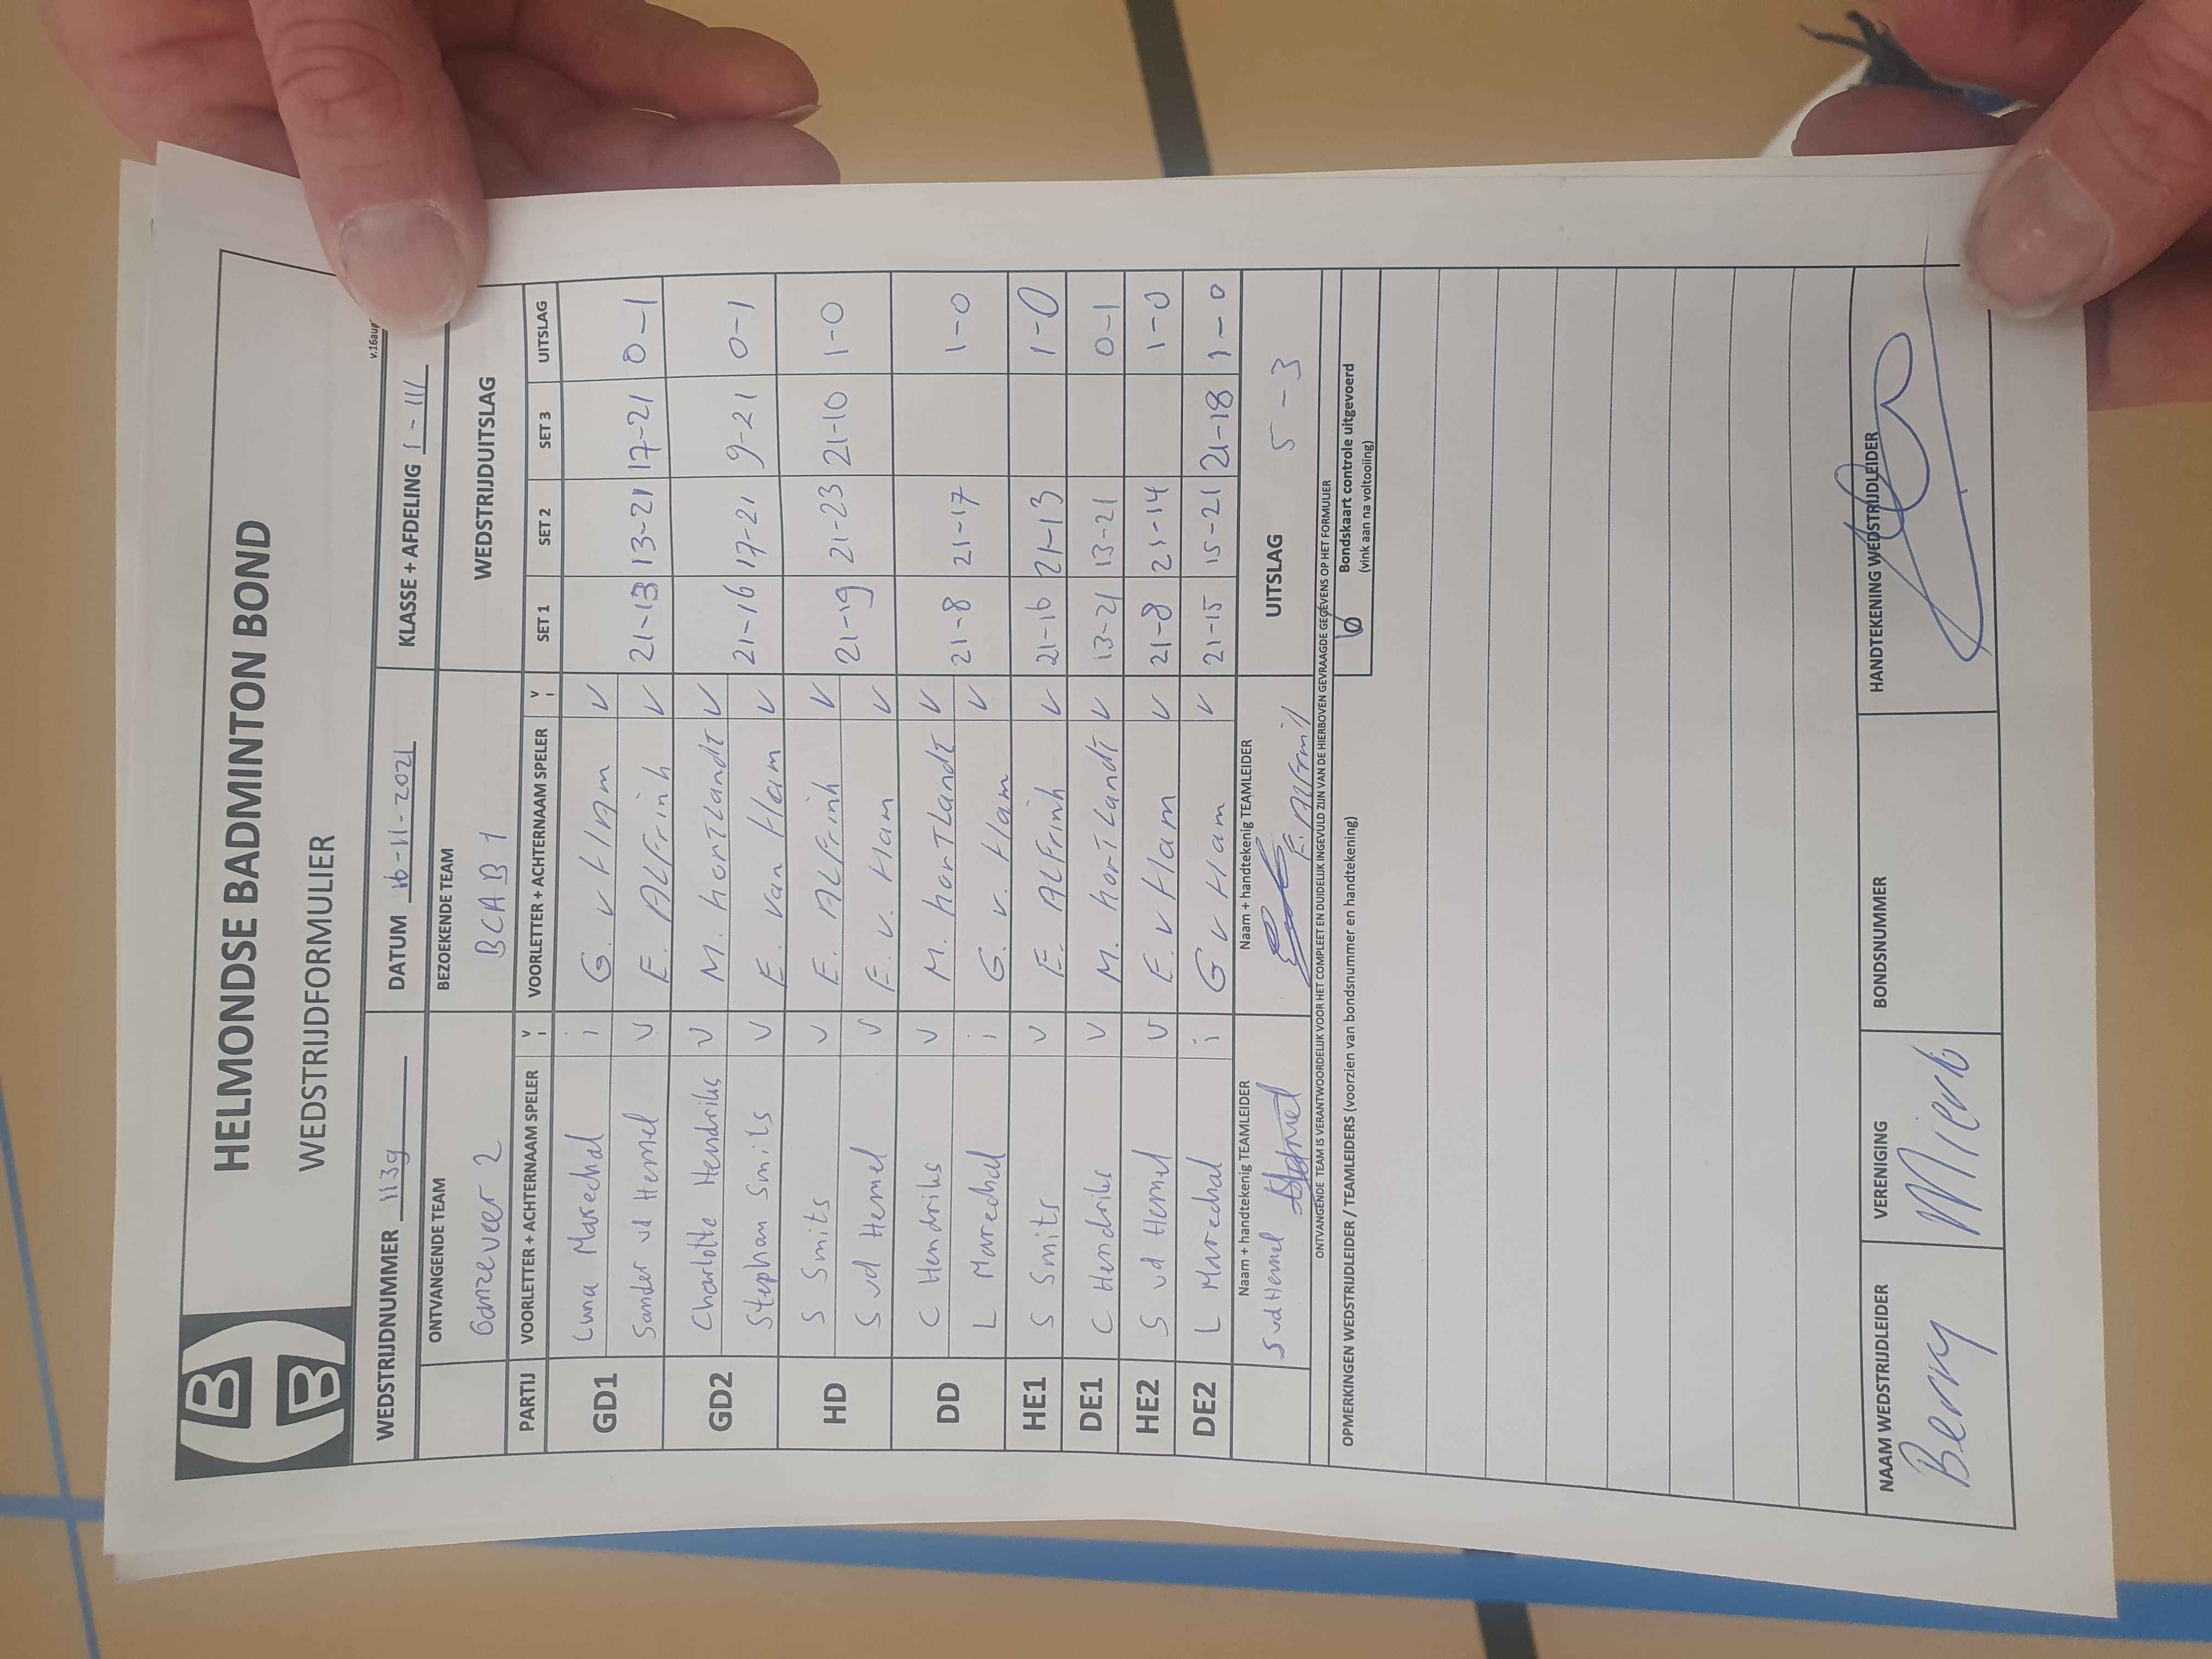 HELMONDSE BADMINTON BOND
WEDSTRIJDFORMULIER
v.16aug
WEDSTRIJDNUMMER 1139 DATUM 16-11-2021 KLASSE + AFDELING 1 - III
ONTVANGENDE TEAM BEZOEKENDE TEAM WEDSTRIJDUITSLAG
Ganzeveer 2 BCAB 1
PARTIJ VOORLETTER + ACHTERNAAM SPELER V I VOORLETTER + ACHTERNAAM SPELER V I SET 1 SET 2 SET 3 UITSLAG
GD1 Luna Marechal i G. v HAm v
Sander vd Hemel v E. ALFrinh v 21-13 13-21 17-21 0-1
GD2 Charlotte Hendriks v M. hortLandt v
Stephan Smits v E. van Ham v 21-16 17-21 9-21 0-1
HD S Smits v E. ALFrinh v
S vd Hemel v E. v. Ham v 21-19 21-23 21-10 1-0
DD C Hendriks v M. horTLandt v
L Marechal i G. v. Ham v 21-8 21-17 1-0
HE1 S Smits v E. ALFrinh v 21-16 21-13 1-0
DE1 C Hendriks v M. horTLandt v 13-21 13-21 0-1
HE2 S vd Hemel v E. v Ham v 21-8 21-14 1-0
DE2 L Marechal i G v Ham v 21-15 15-21 21-18 1-0
Naam + handtekenig TEAMLEIDER Naam + handtekenig TEAMLEIDER UITSLAG 5 - 3
S vd Hemel
ONTVANGENDE TEAM IS VERANTWOORDELIJK VOOR HET COMPLEET EN DUIDELIJK INGEVULD ZIJN VAN DE HIERBOVEN GEVRAAGDE GEGEVENS OP HET FORMULIER
OPMERKINGEN WEDSTRIJDLEIDER / TEAMLEIDERS (voorzien van bondsnummer en handtekening)
Bondskaart controle uitgevoerd
(vink aan na voltooiing)
NAAM WEDSTRIJDLEIDER VERENIGING BONDSNUMMER HANDTEKENING WEDSTRIJDLEIDER
Berry Mierlo